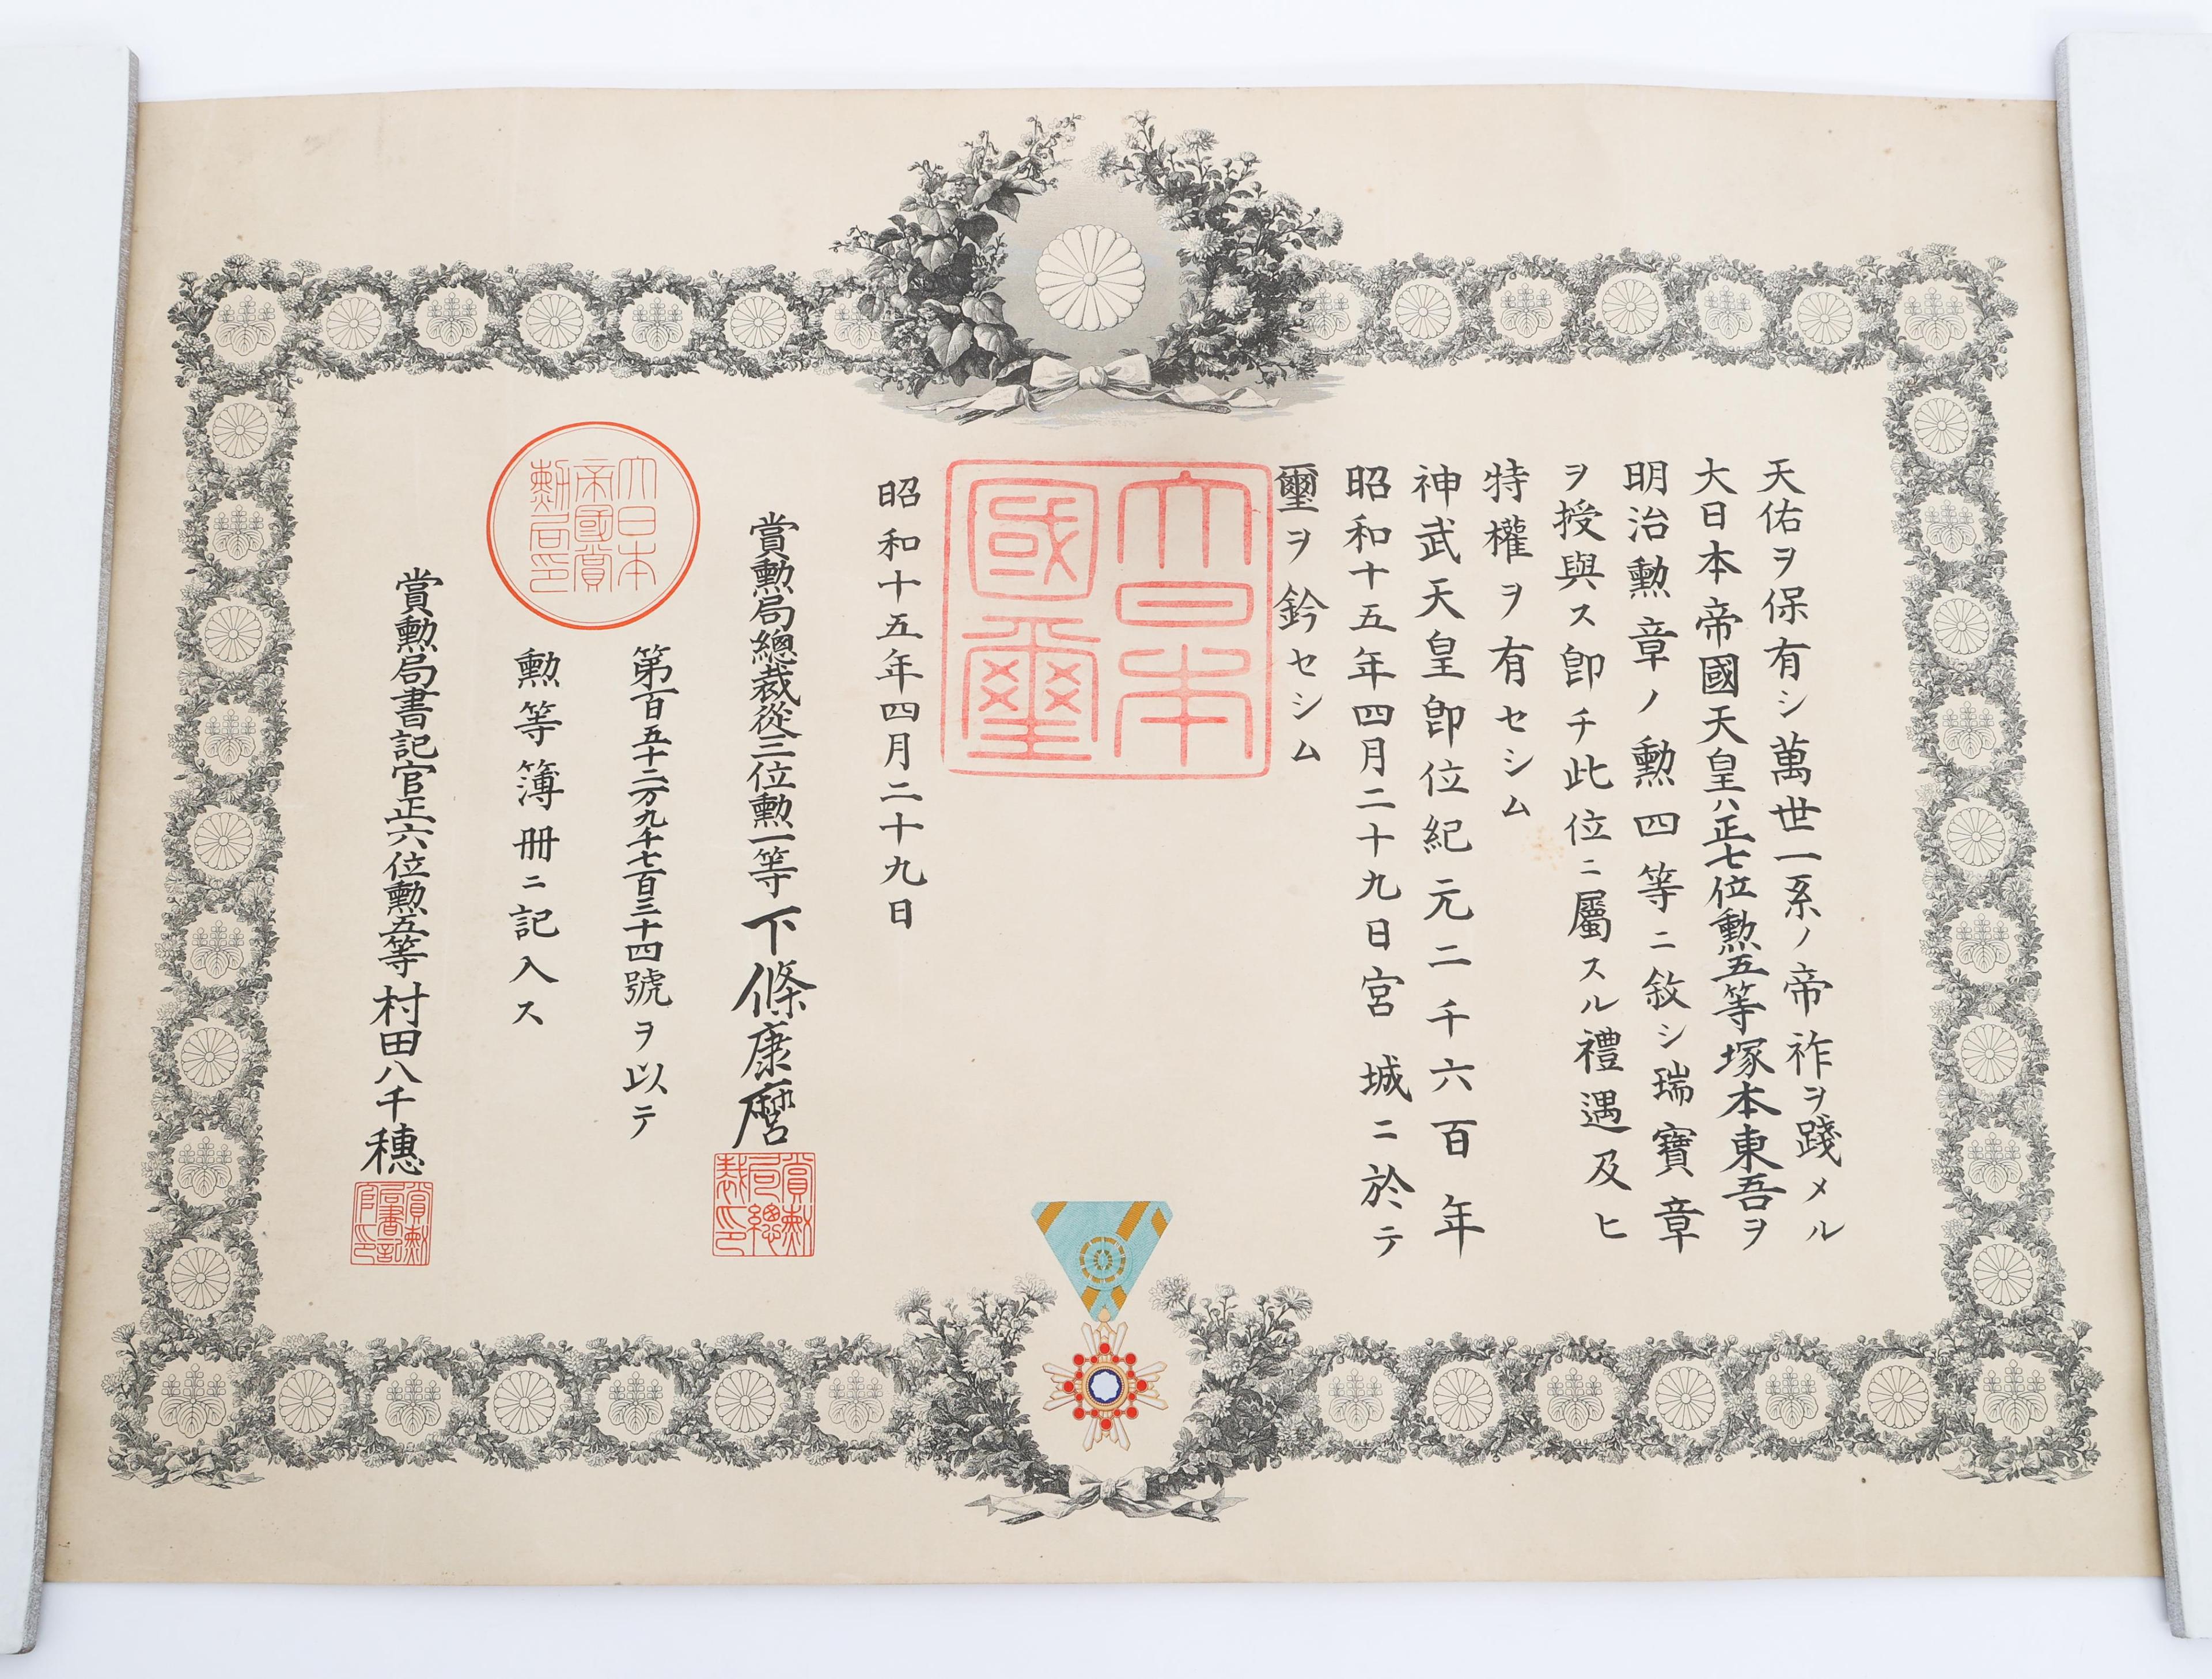 天佑ヲ保有シ萬世一系ノ帝祚ヲ踐メル
大日本帝國天皇ハ正七位勲五等塚本東吾ヲ
明治勲章ノ勲四等ニ敘シ瑞寶章
ヲ授與ス卽チ此位ニ屬スル禮遇及ヒ
特權ヲ有セシム
神武天皇卽位紀元二千六百年
昭和十五年四月二十九日宮城ニ於テ
璽ヲ鈐セシム
大日本
國璽
昭和十五年四月二十九日
賞勲局總裁從三位勲一等下條康麿
賞勲
局總
裁印
第百五十二万九千七百三十四號ヲ以テ
勲等簿册ニ記入ス
大日本
帝國賞
勲局印
賞勲局書記官正六位勲五等村田八千穗
賞勲
局書記
官印